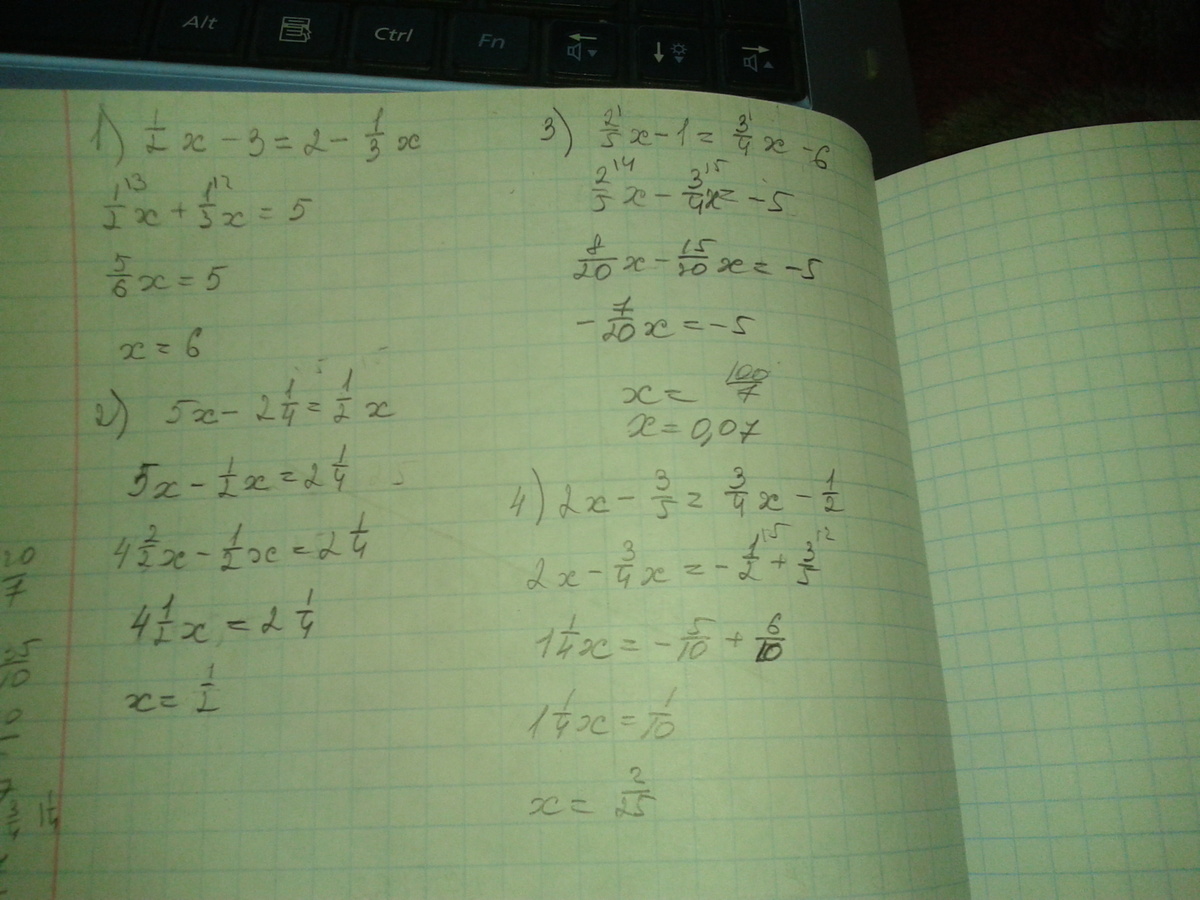 Alt
Ctrl
Fn
1) 1/2 x - 3 = 2 - 1/3 x
1/2^{13} x + 1/3^{12} x = 5
5/6 x = 5
x = 6
2) 5x - 2 1/4 = 1/2 x
5x - 1/2 x = 2 1/4
4 2/2 x - 1/2 x = 2 1/4
4 1/2 x = 2 1/4
x = 1/2
3) 2/5 x - 1 = 3/4 x - 6
2/5^{14} x - 3/4^{15} x = -5
8/20 x - 15/20 x = -5
-7/20 x = -5
x = 100/7
x = 0,07
4) 2x - 3/5 = 3/4 x - 1/2
2x - 3/4 x = -1/2^{15} + 3/5^{12}
1 1/4 x = -5/10 + 6/10
1 1/4 x = 1/10
x = 2/25